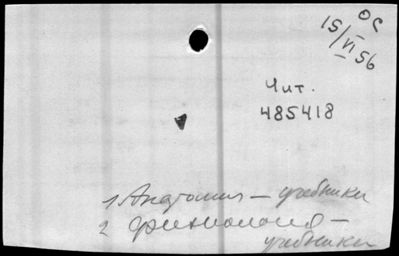 ОС
15/VI 56
Чит.
485418
1 Анатомия — учебники
2 Физиология —
учебники